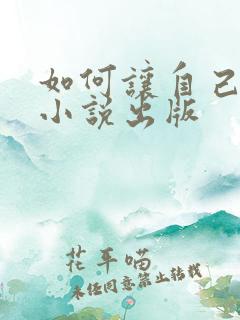 如何讓自己
小説出版
花平喵
未经同意禁止转载